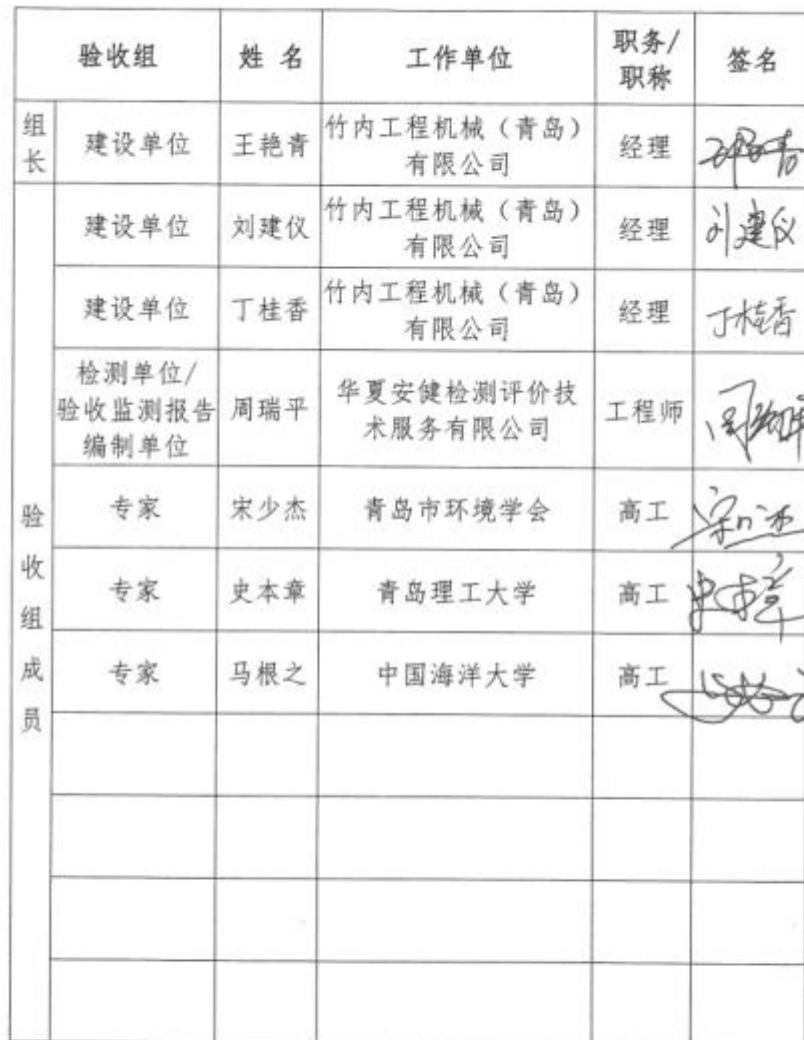 验收组 姓 名 工作单位 职务/职称 签名
组长 建设单位 王艳青 竹内工程机械（青岛）有限公司 经理 王艳青
验收组成员
建设单位 刘建仪 竹内工程机械（青岛）有限公司 经理 刘建仪
建设单位 丁桂香 竹内工程机械（青岛）有限公司 经理 丁桂香
检测单位/验收监测报告编制单位 周瑞平 华夏安健检测评价技术服务有限公司 工程师 周瑞平
专家 宋少杰 青岛市环境学会 高工 宋少杰
专家 史本章 青岛理工大学 高工 史本章
专家 马根之 中国海洋大学 高工